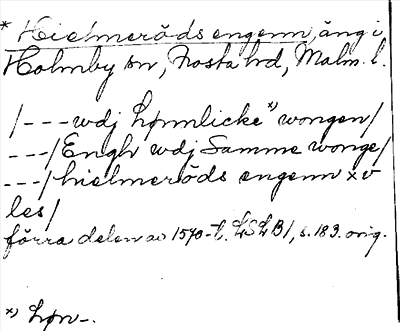 * Hielmeröds engenn, äng i
Holmby sn, Frosta hd, Malm. l.
/--- wdj Lønnlicke *) wongen/
---/Engh wdj Samme wonge/
---/hielmeröds engenn xv
les/
förra delen av 1570-t. LSLB1, s. 183. orig.
*) Løn-.